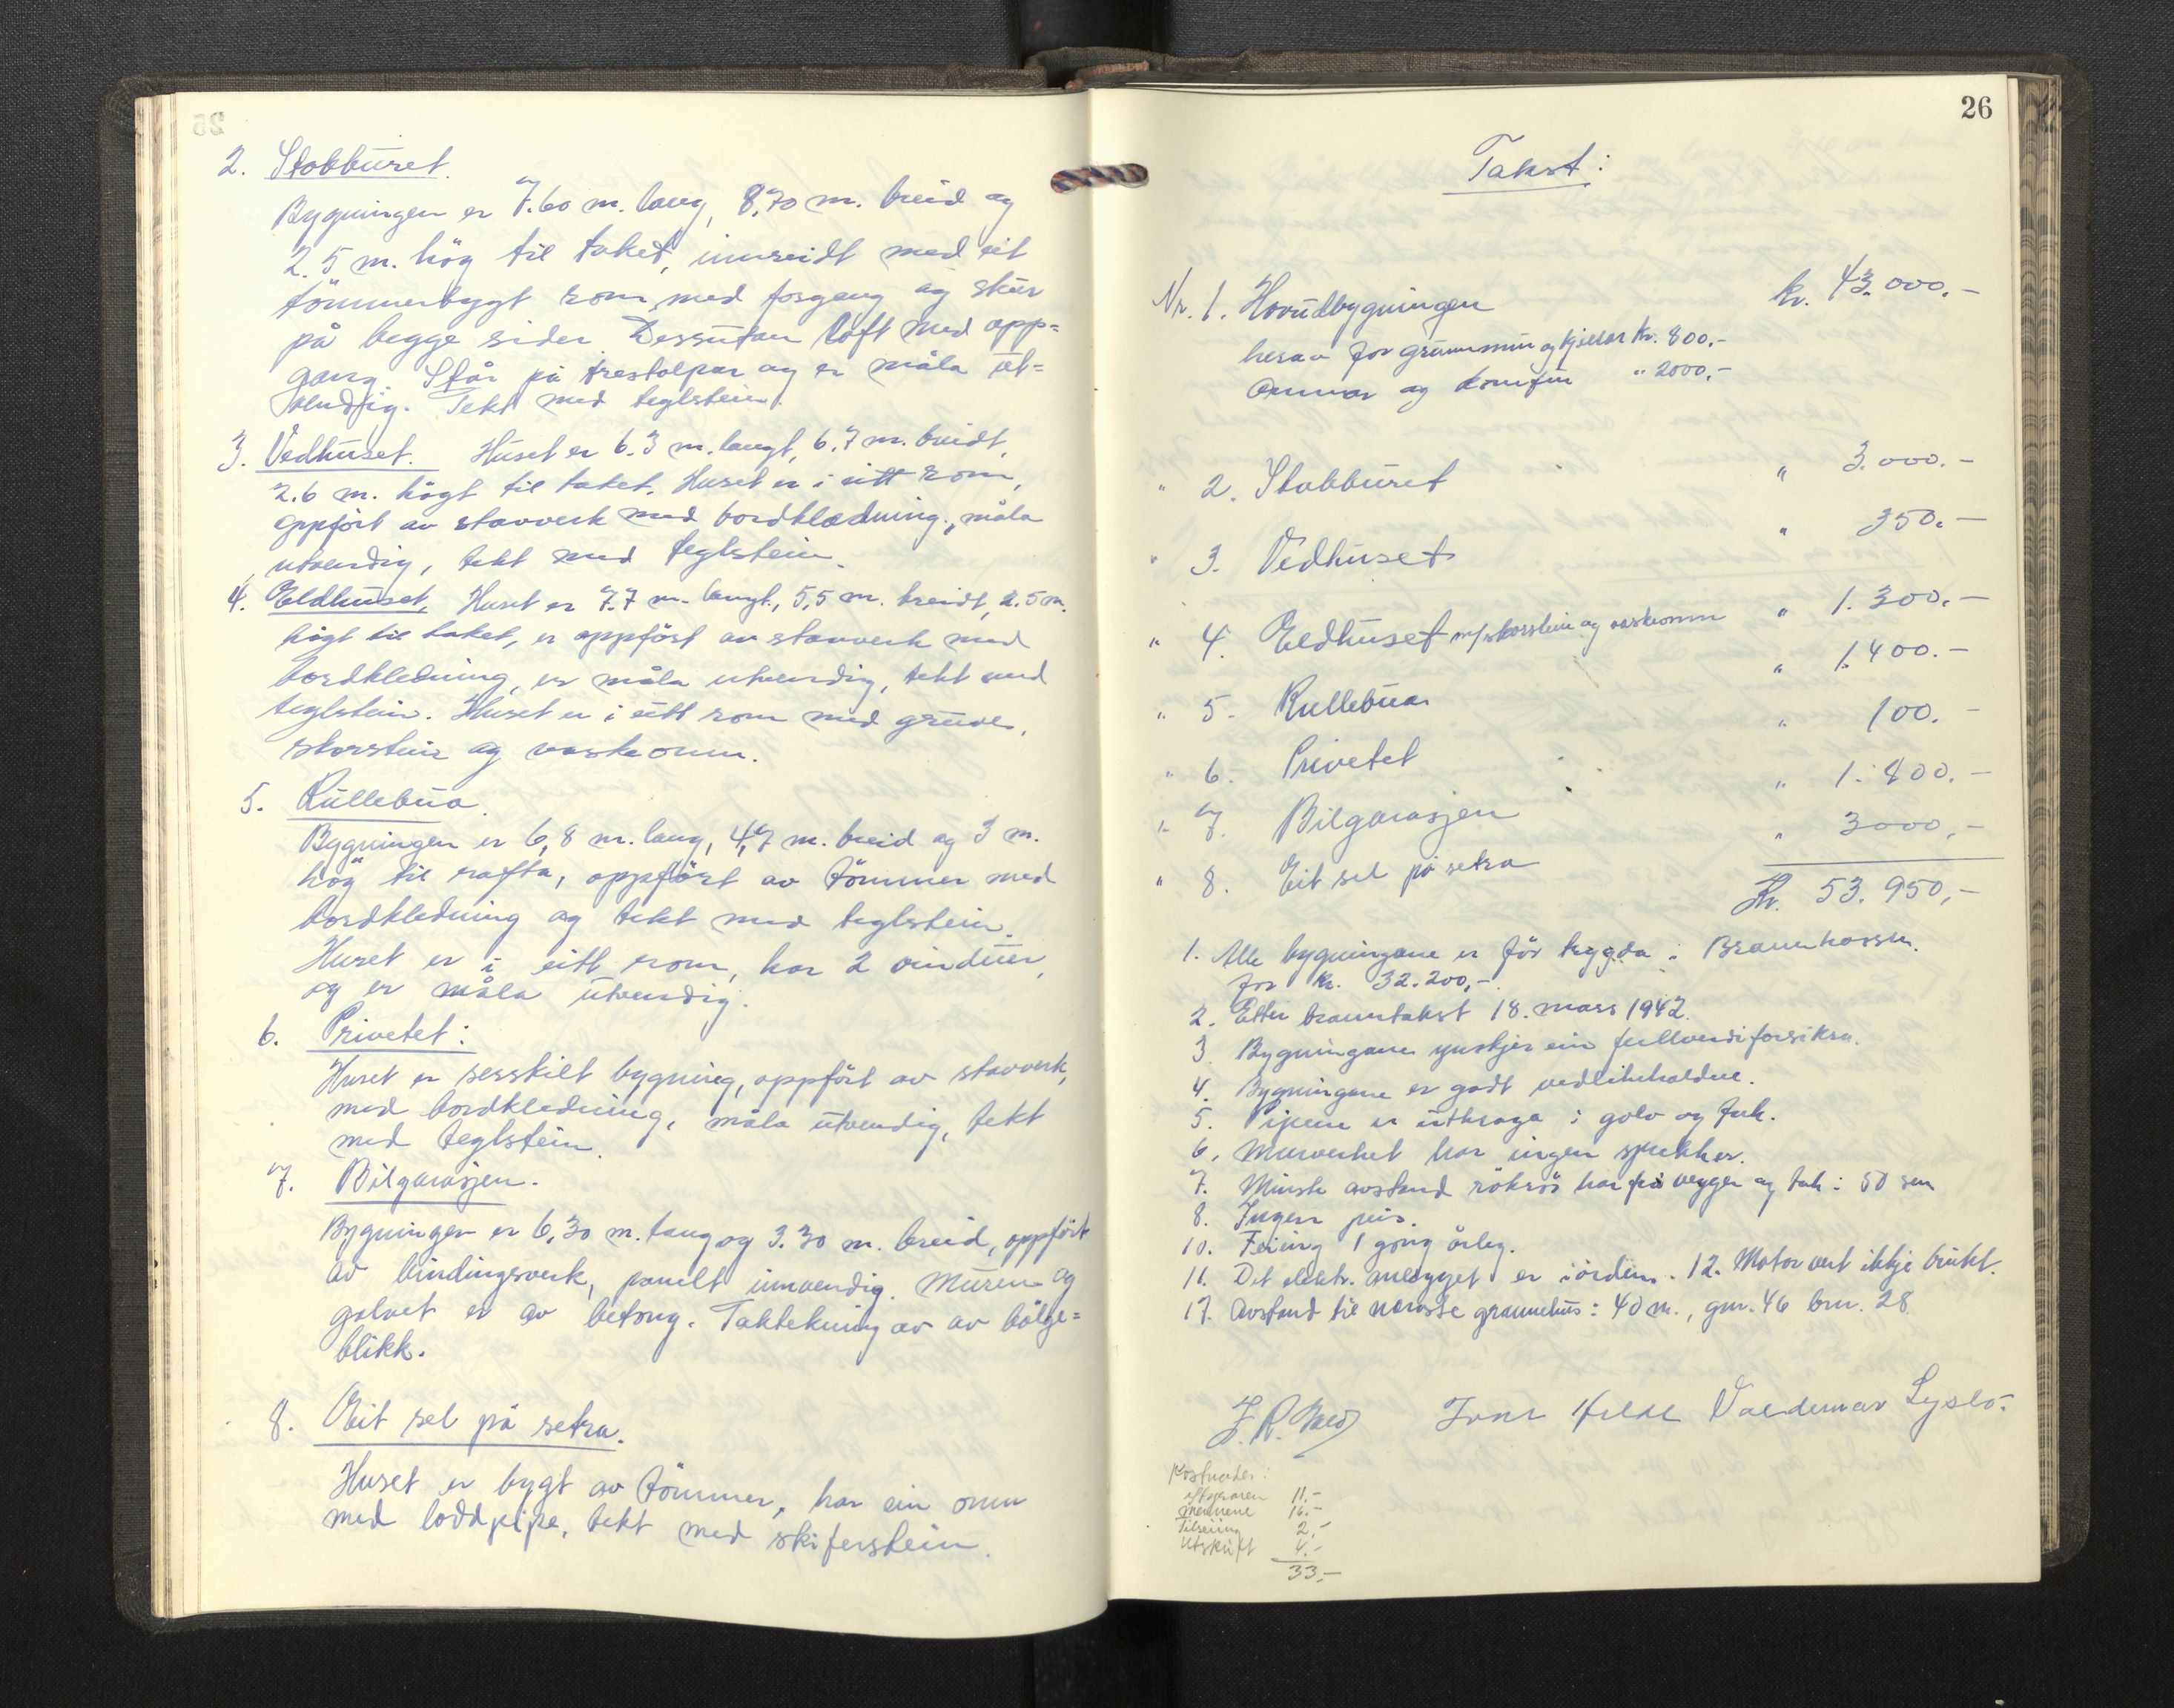 2. Stabburet.
Bygningen er 7.60 m. lang, 8,70 m. breid og
2.5 m. høg til taket, innreidt med eit
tömmerbygt rom, med forgang og skur
på begge sider. Dessutan loft med opp=
gang. Står på trestolpar og er måla ut=
vendig. Tekt med teglstein.
3. Vedhuset. Huset er 6.3 m. langt, 6.7 m. breidt,
2.6 m. högt til taket. Huset er i eitt rom,
oppfört av stavverk med bordklædning, måla
utvendig, tekt med teglstein.
4. Eldhuset. Huset er 7.7 m. langt, 5,5 m. breidt, 2.5 m.
högt til taket, er oppfört av stavverk med
bordkledning, er måla utvendig, tekt med
teglstein. Huset er i eitt rom med gruve,
skorstein og vaskeomn.
5. Rullebua.
Bygningen er 6,8 m. lang, 4,7 m. breid og 3 m.
hög til rafta, oppfört av tömmer med
bordkledning og tekt med teglstein.
Huset er i eitt rom, har 2 vinduer,
og er måla utvendig.
6. Privetet:
Huset er serskilt bygning, oppfört av stavverk,
med bordkledning, måla utvendig, tekt
med teglstein.
7. Bilgarasjen.
Bygningen er 6,30 m. lang og 3.30 m. breid, oppfört
av bindingsverk, panelt innvendig. Muren og
golvet er av betong. Taktekning av av bölge=
blikk.
8. Eit sel på setra.
Huset er bygt av tömmer, har ein omn
med loddpipe, tekt med skiferstein.
26
Takst:
Nr. 1. Hovudbygningen kr. 43.000.-
herav for grunnmur og kjellar kr. 800.-
Omnar og komfur " 2000.-
" 2. Stabburet " 3.000.-
" 3. Vedhuset " 350.-
" 4. Eldhuset m/skorstein og vaskomn " 1.300.-
" 5. Rullebua " 1.400.-
" 6. Privetet " 100.-
" 7. Bilgarasjen " 1.800.-
" 8. Eit sel på setra " 3000.-
Kr. 53.950,-
1. Alle bygningane er för trygda i Brannkassen
for kr. 32.200,-
2. Etter branntakst 18. mars 1942.
3. Bygningane ynskjer ein fullverdiforsikra.
4. Bygningane er godt vedlikehaldne.
5. Pipene er utkraga i golv og tak.
6. Murverket har ingen sprekker.
7. Minste avstand rökrör har frå vegger og tak: 50 sm
8. Ingen peis.
10. Feiing 1 gong årleg.
11. Det elektr. anlegget er i orden. 12. Motor vert ikkje brukt.
17. Avstand til næraste grannehus: 40 m., gnr. 46 bnr. 28
Valdemar Lyslo.
Kostnader:
11.-
mennene 16.-
Tilseiing 2,-
Utskrift 4.-
33,-